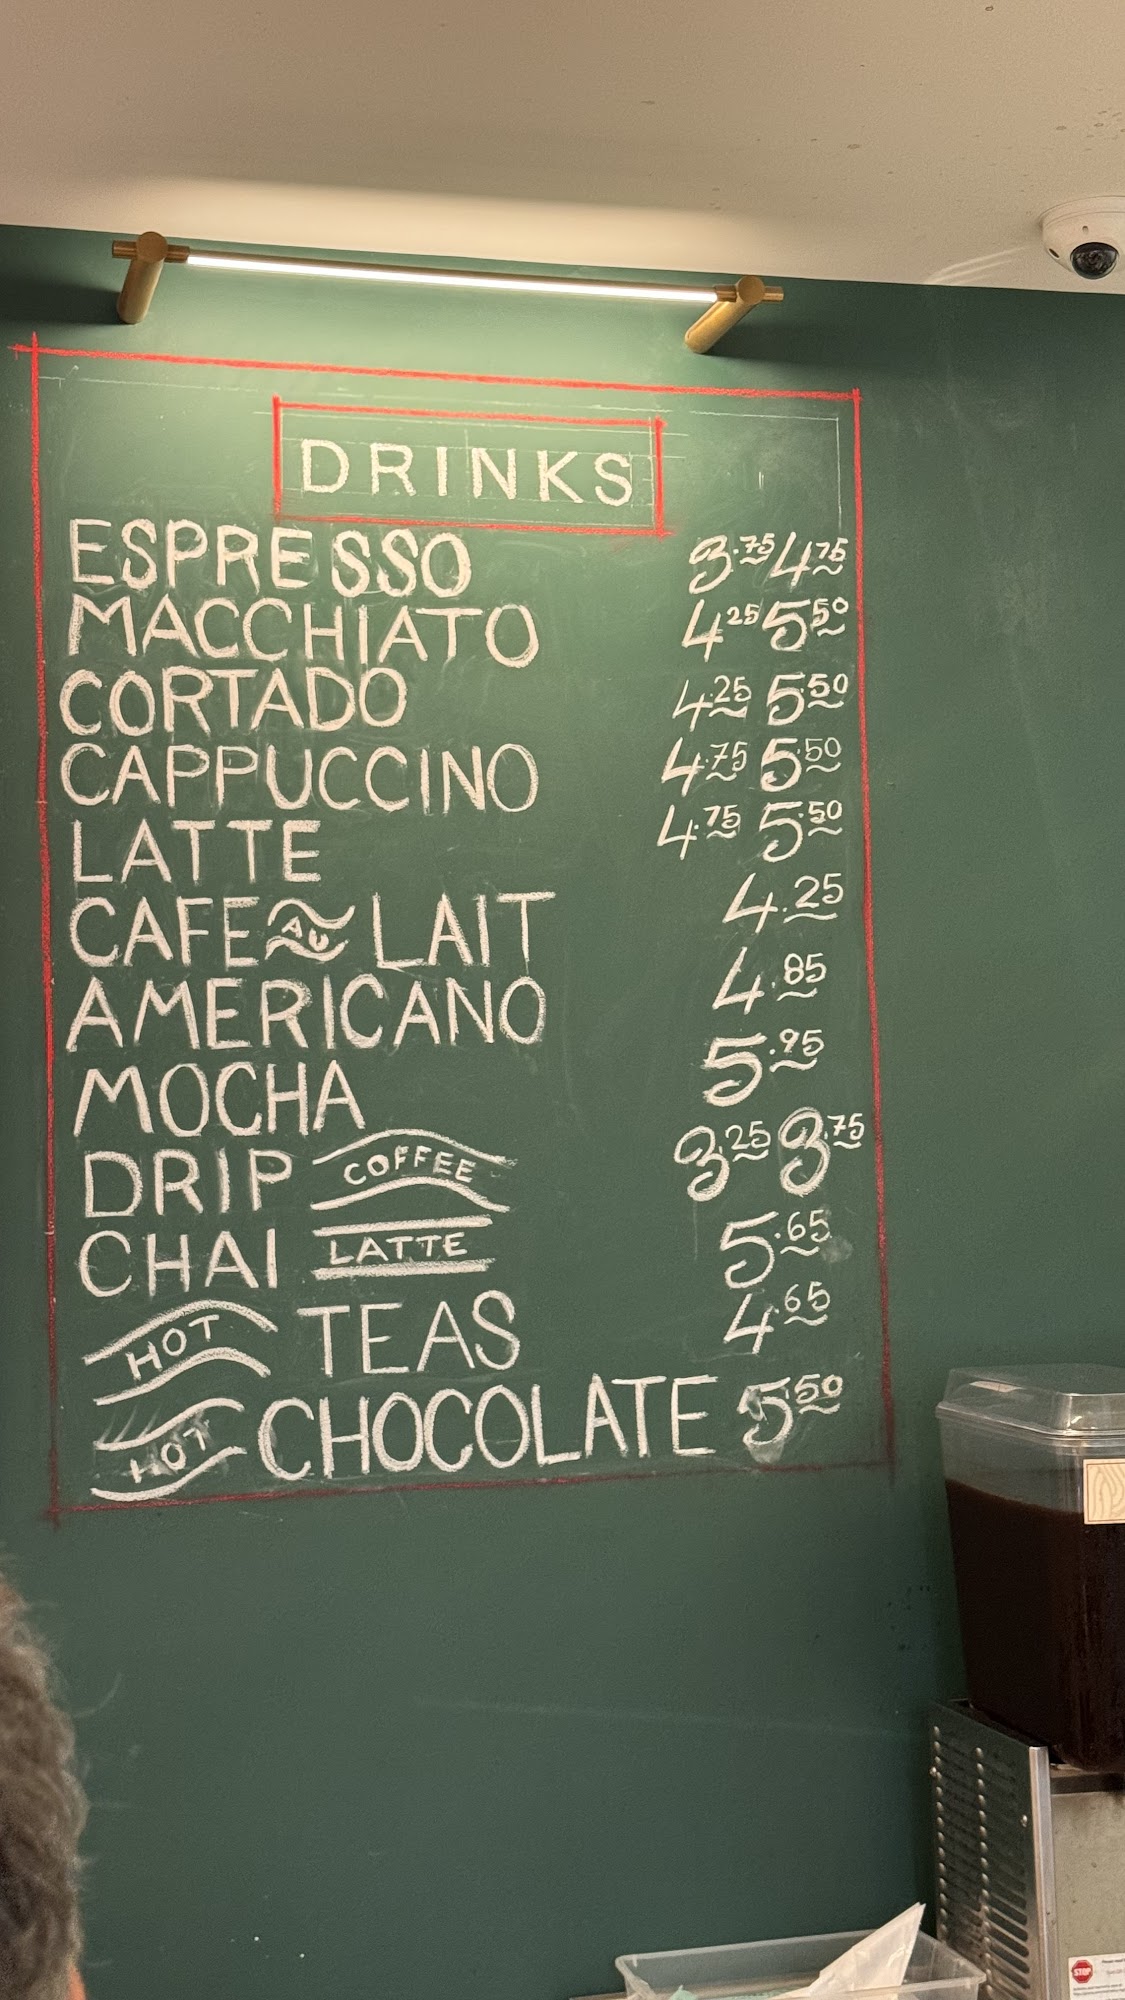 DRINKS
ESPRESSO 3.75/4.75
MACCHIATO 4.25/5.50
CORTADO 4.25 5.50
CAPPUCCINO 4.75 5.50
LATTE 4.75 5.50
CAFE AU LAIT 4.25
AMERICANO 4.85
MOCHA 5.95
DRIP COFFEE 3.25 3.75
CHAI LATTE 5.65
HOT TEAS 4.65
HOT CHOCOLATE 5.50
STOP